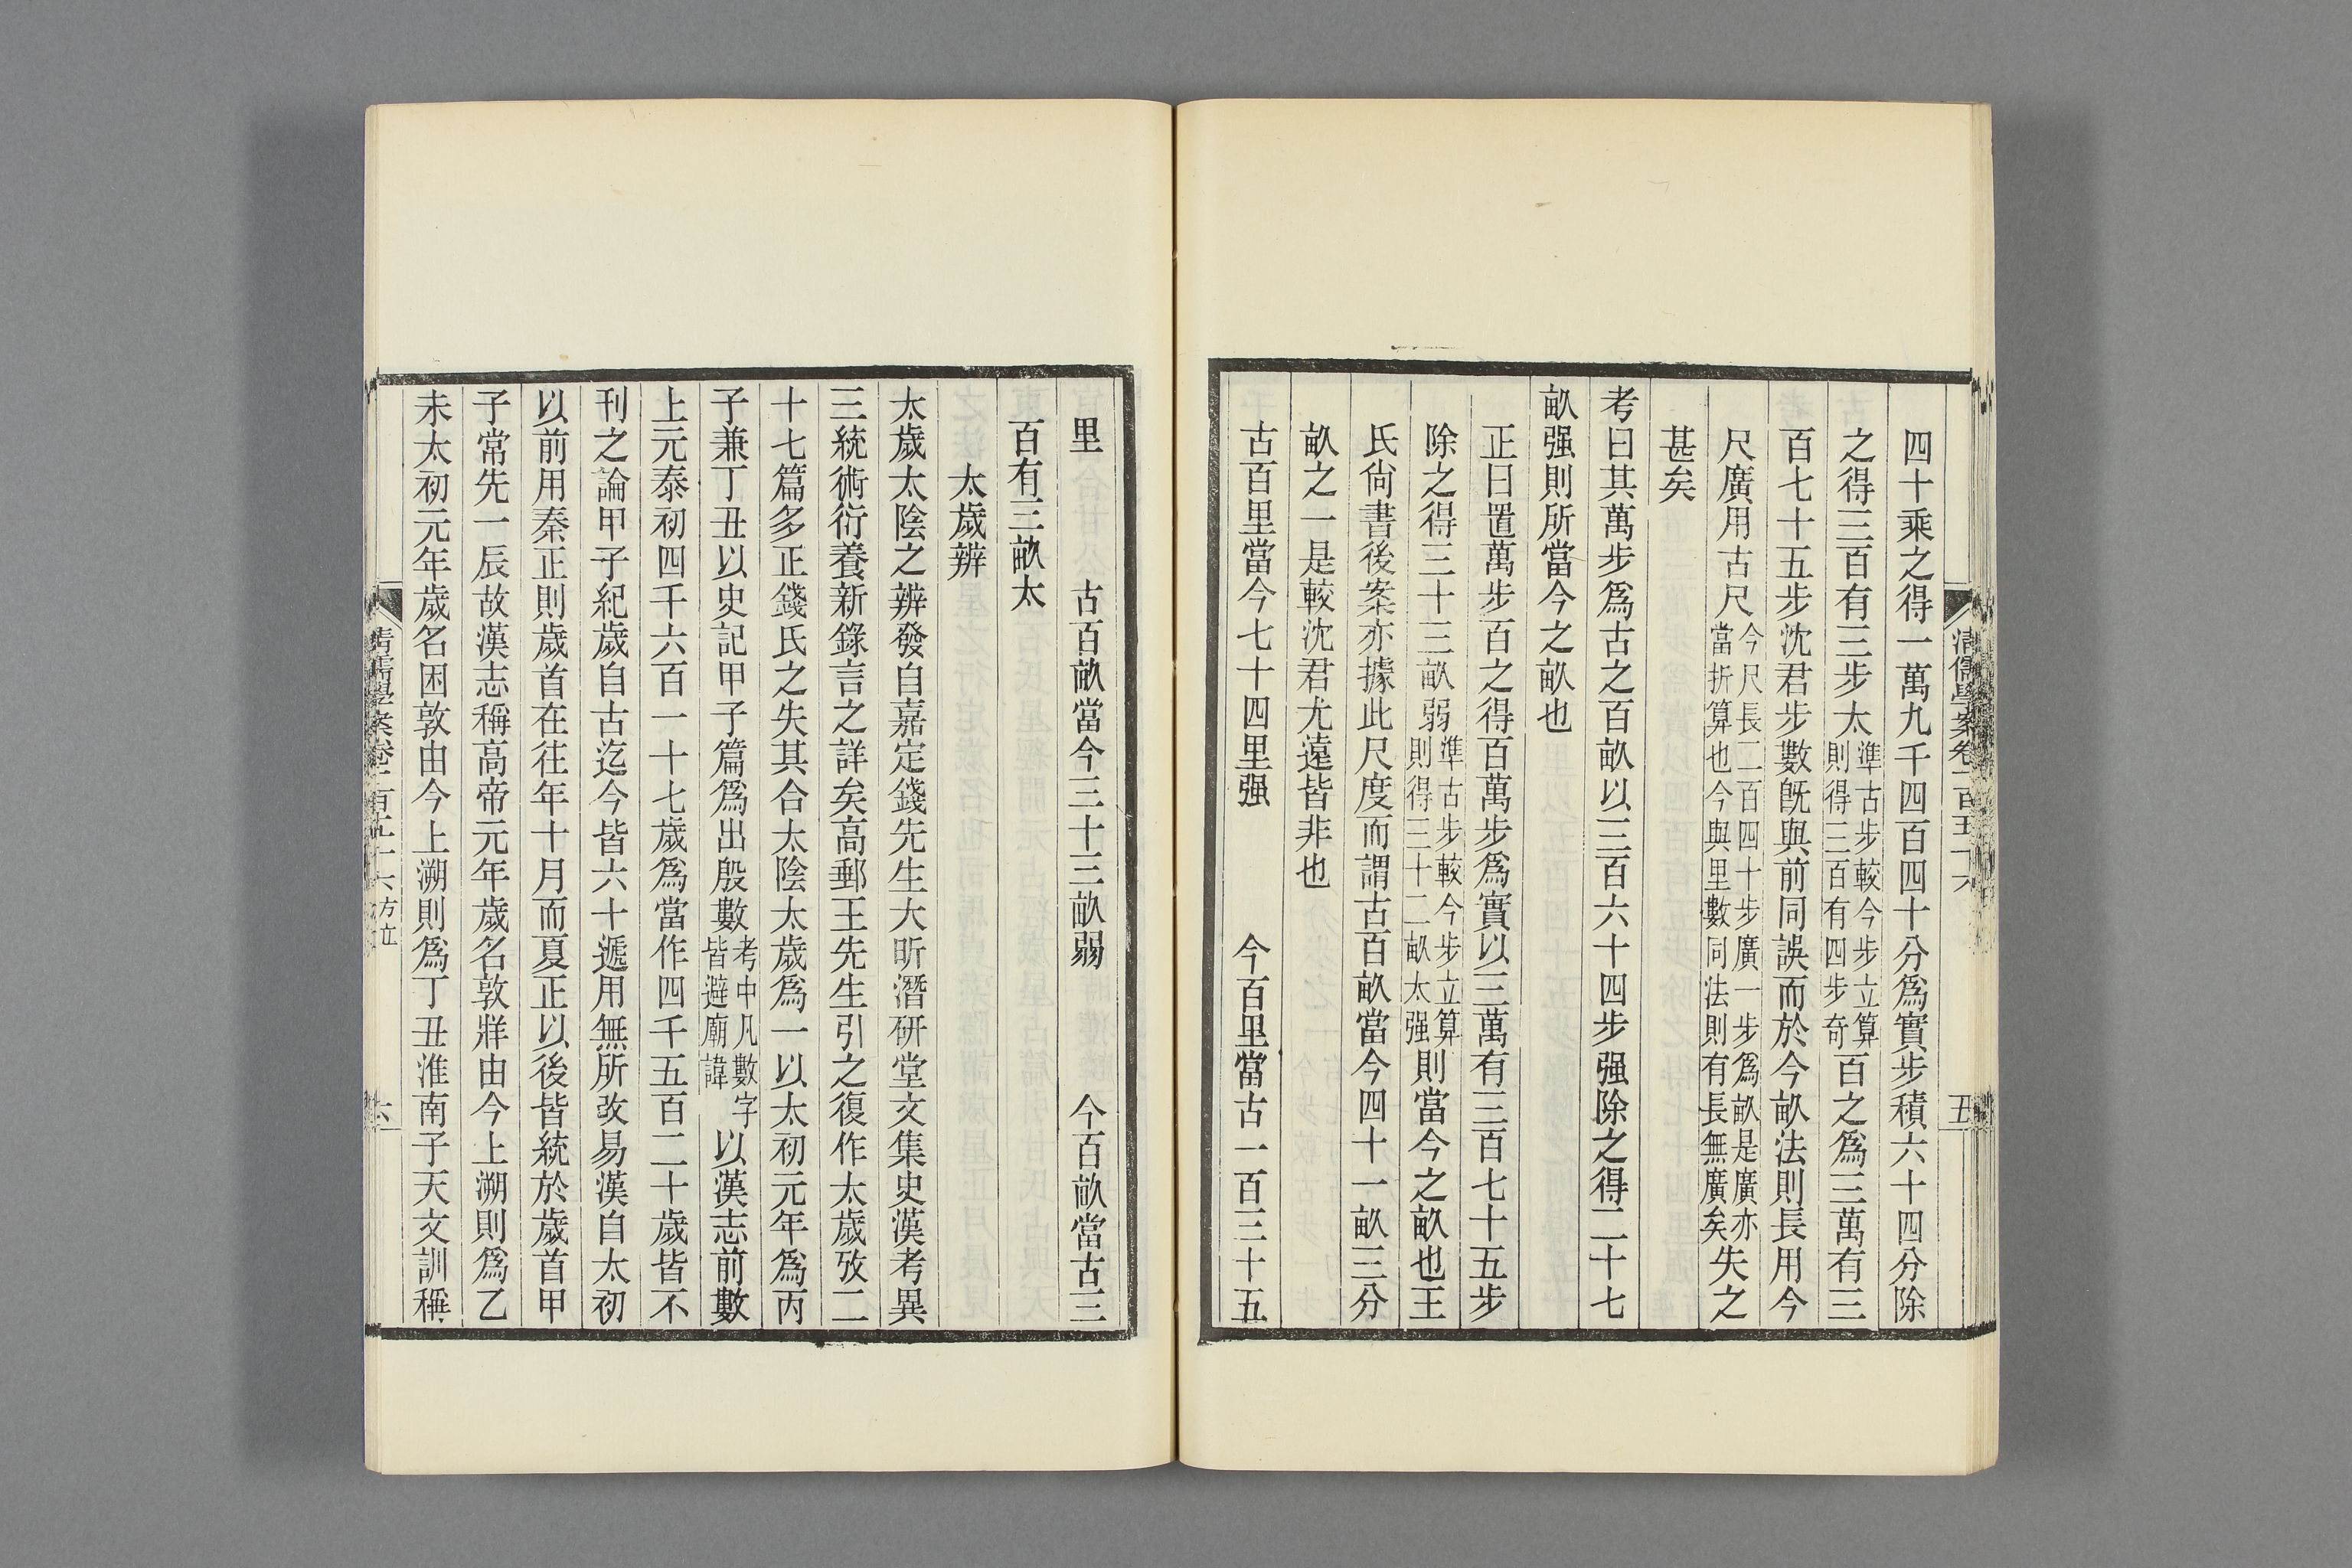 清儒學案卷一百五十六
五
四十乘之得一萬九千四百四十分爲實步積六十四分除
之得三百有三步太準古步較今步立算則得三百有四步奇百之爲三萬有三
百七十五步沈君步數旣與前同誤而於今畝法則長用今
尺廣用古尺今尺長二百四十步廣一步爲畝是廣亦當折算也今與里數同法則有長無廣矣失之
甚矣
考曰其萬步爲古之百畝以三百六十四步强除之得二十七
畝强則所當今之畝也
正曰置萬步百之得百萬步爲實以三萬有三百七十五步
除之得三十三畝弱準古步較今步立算則得三十二畝太强則當今之畝也王
氏尙書後案亦據此尺度而謂古百畝當今四十一畝三分
畝之一是較沈君尤遠皆非也
古百里當今七十四里强　今百里當古一百三十五
里　古百畝當今三十三畝弱　今百畝當古三
百有三畝太
太歲辨
太歲太陰之辨發自嘉定錢先生大昕潛硏堂文集史漢考異
三統術衍養新錄言之詳矣高郵王先生引之復作太歲攷二
十七篇多正錢氏之失其合太陰太歲爲一以太初元年爲丙
子兼丁丑以史記甲子篇爲出殷數考中凡數字皆避廟諱以漢志前數
上元泰初四千六百一十七歲爲當作四千五百二十歲皆不
刊之論甲子紀歲自古迄今皆六十遞用無所改易漢自太初
以前用秦正則歲首在往年十月而夏正以後皆統於歲首甲
子常先一辰故漢志稱高帝元年歲名敦牂由今上溯則爲乙
未太初元年歲名困敦由今上溯則爲丁丑淮南子天文訓稱
清儒學案卷一百五十六 方立
六